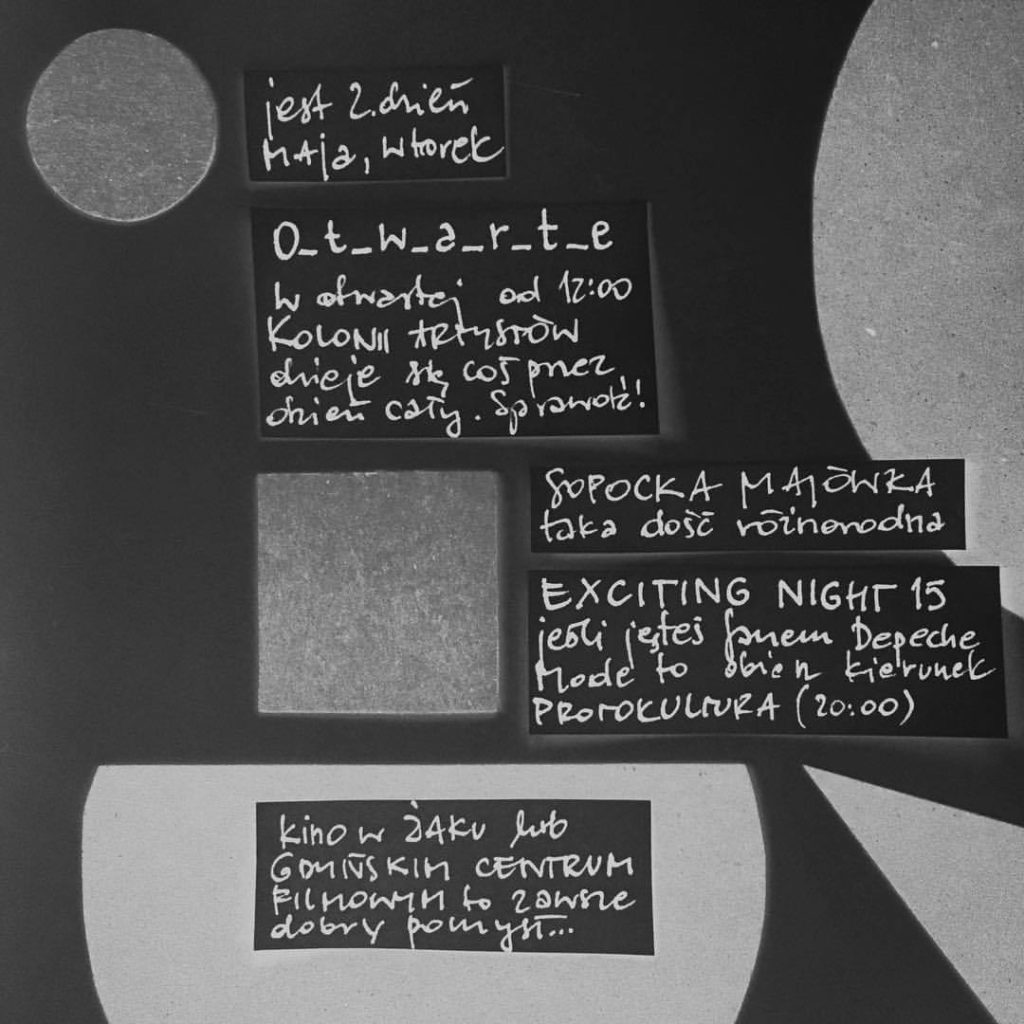 jest 2. dzień
maja, wtorek
O_t_w_a_r_t_e
w otwartej od 12:00
KOLONII ARTYSTÓW
dzieje się coś przez
dzień cały. Sprawdź!
SOPOCKA MAJÓWKA
taka dość różnorodna
EXCITING NIGHT 15
jeśli jesteś fanem Depeche
Mode to obierz kierunek
PROTOKULTURA (20:00)
kino w ŻAKU lub
GDAŃSKIM CENTRUM
FILMOWYM to zawsze
dobry pomysł...